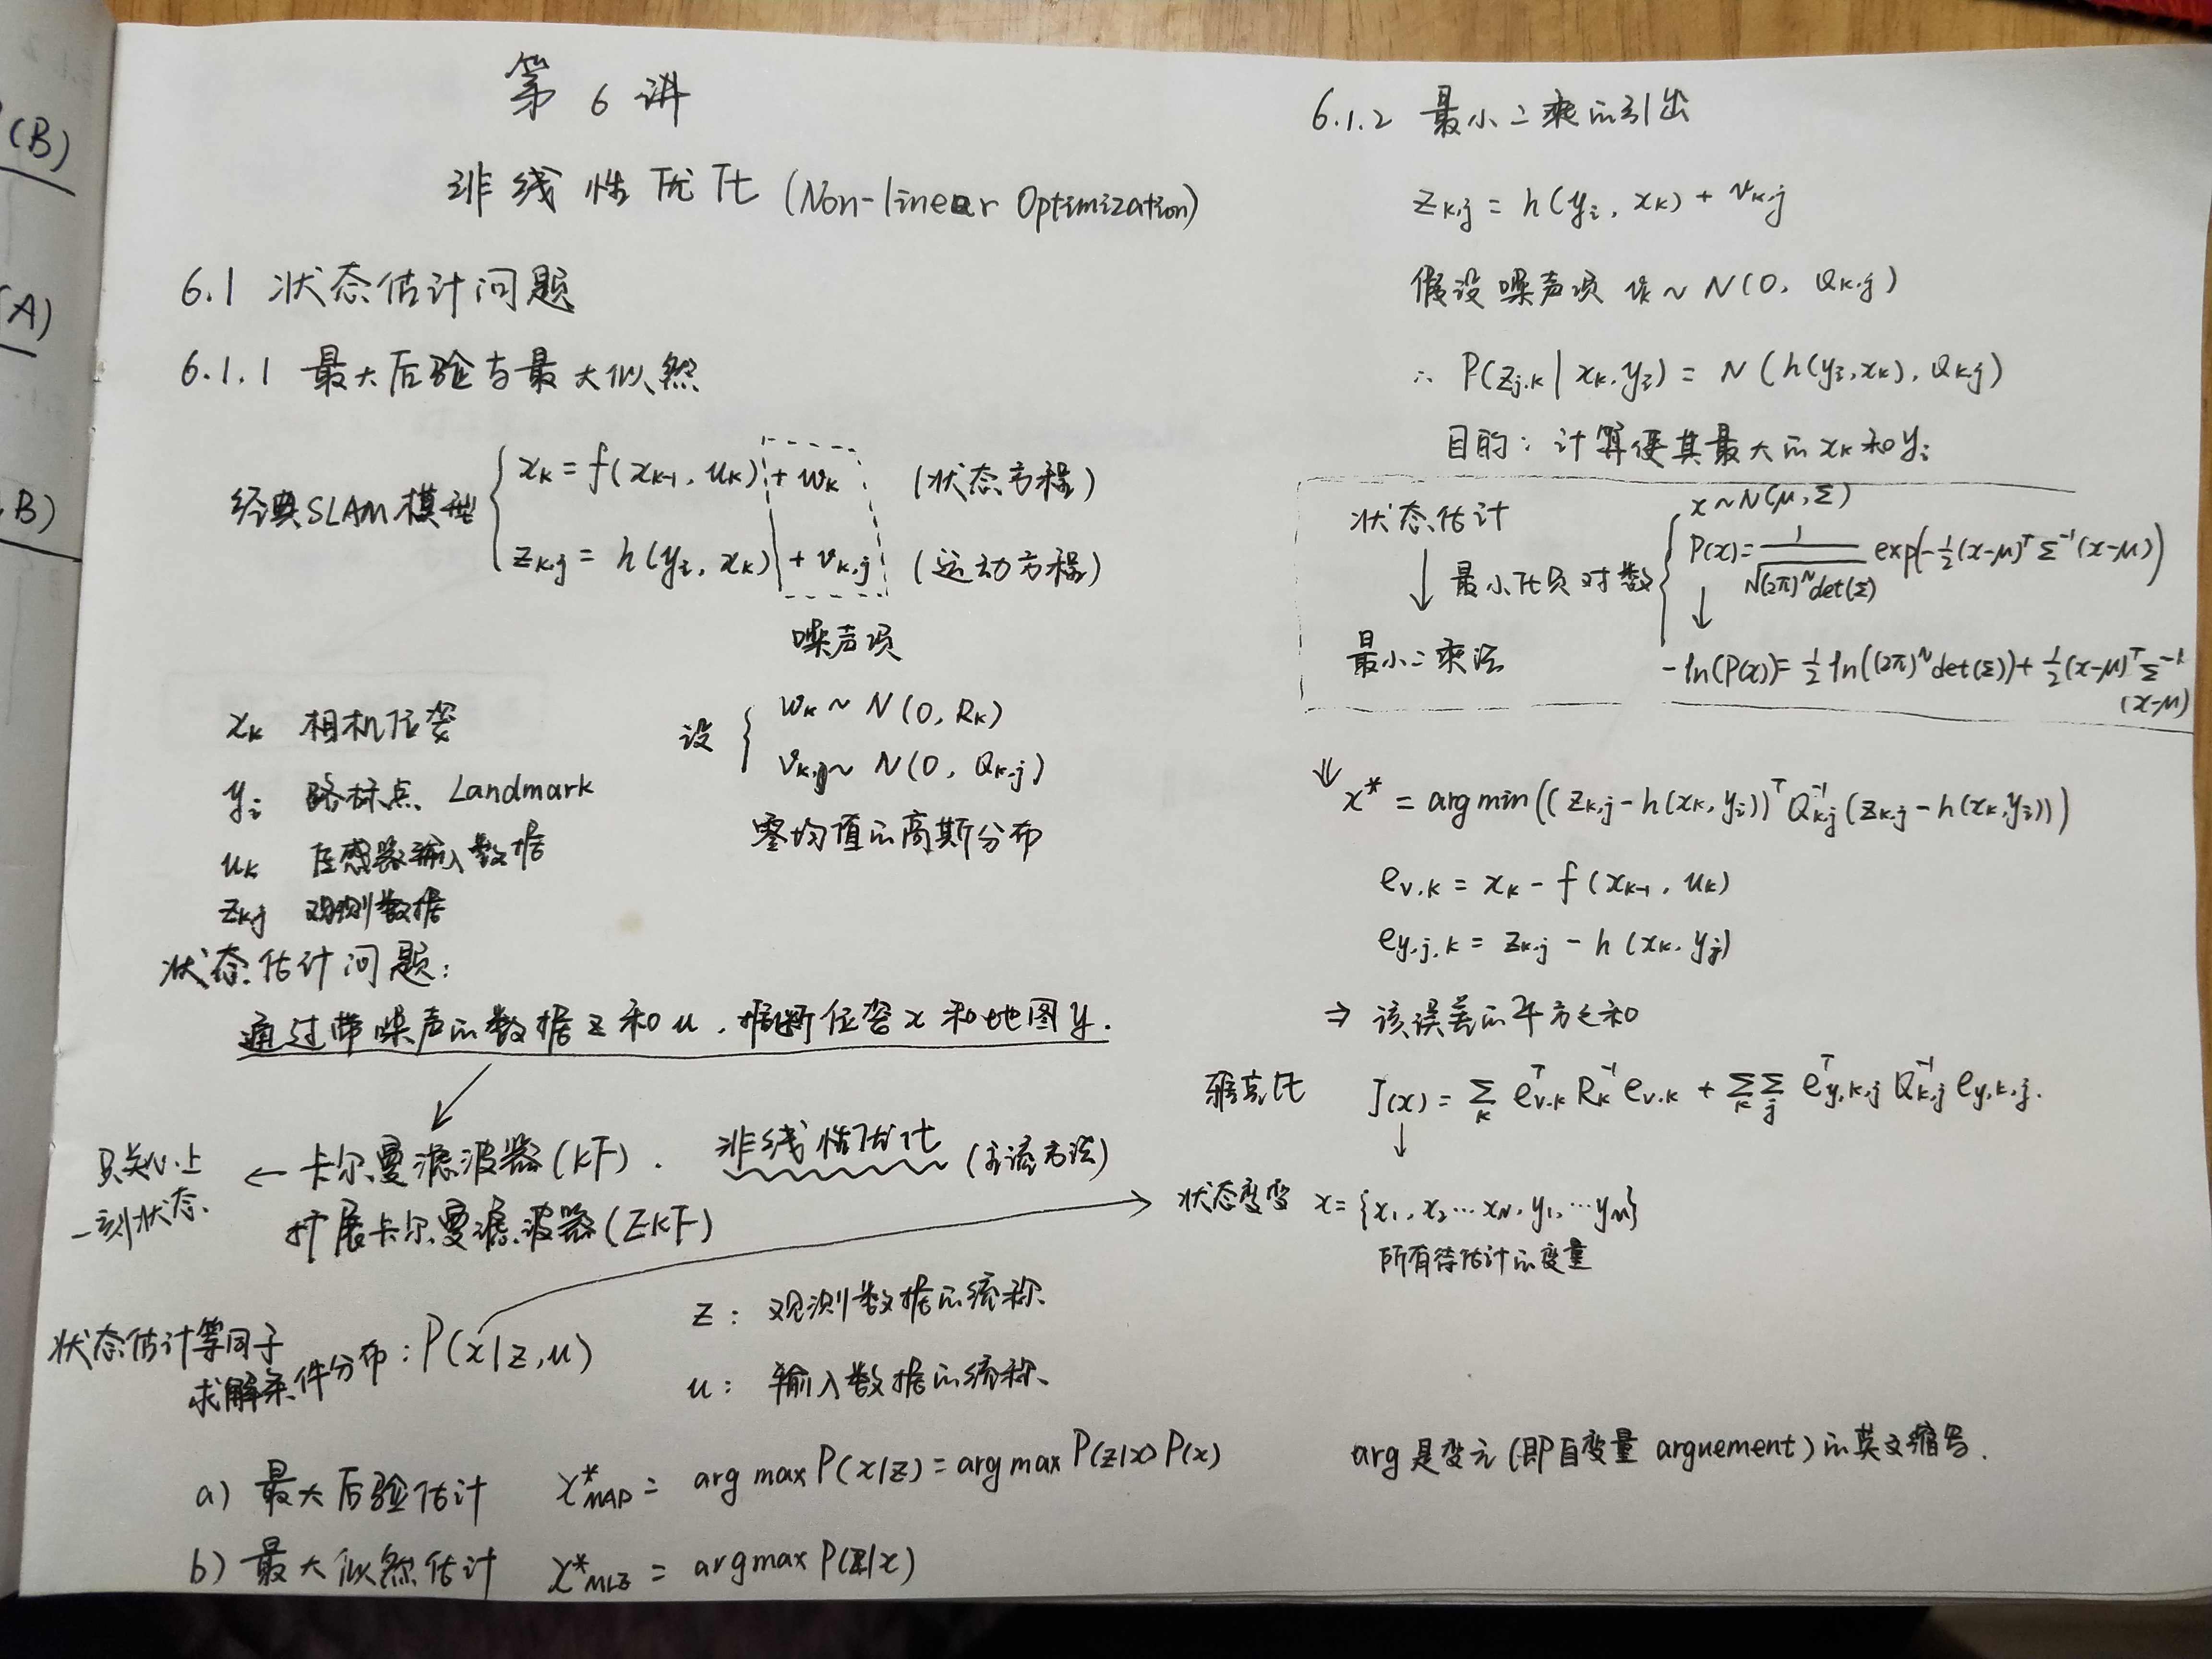 第 6 讲
非线性优化 (Non-linear Optimization)
6.1 状态估计问题
6.1.1 最大后验与最大似然
经典SLAM模型
x_k = f(x_{k-1}, u_k) + w_k (状态方程)
z_{k,j} = h(y_i, x_k) + v_{k,j} (运动方程)
噪声项
x_k 相机位姿
y_i 路标点 Landmark
u_k 传感器输入数据
z_{kj} 观测数据
设
w_k ~ N(0, R_k)
v_{k,j} ~ N(0, Q_{k,j})
零均值的高斯分布
状态估计问题:
通过带噪声的数据 z 和 u, 推断位姿 x 和地图 y.
只关心上
一刻状态
← 卡尔曼滤波器(KF). 非线性优化 (主流方法)
扩展卡尔曼滤波器(EKF)
状态估计等同于
求解条件分布: P(x|z,u)
z: 观测数据的统称
u: 输入数据的统称
a) 最大后验估计 x*_{MAP} = arg max P(x|z) = arg max P(z|x) P(x)
b) 最大似然估计 x*_{MLE} = argmax P(z|x)
6.1.2 最小二乘的引出
z_{k,j} = h(y_i, x_k) + v_{k,j}
假设噪声项 v_k ~ N(0, Q_{k,j})
∴ P(z_{j,k} | x_k, y_i) = N(h(y_i, x_k), Q_{k,j})
目的: 计算使其最大的 x_k 和 y_i
状态估计
↓ 最小化负对数
最小二乘法
x ~ N(μ, Σ)
P(x) = 1/√((2π)^N det(Σ)) exp(-½(x-μ)^T Σ^{-1}(x-μ))
↓
-ln(P(x)) = ½ ln((2π)^N det(Σ)) + ½(x-μ)^T Σ^{-1}
(x-μ)
⇓ x* = arg min((z_{k,j} - h(x_k, y_i))^T Q_{k,j}^{-1} (z_{k,j} - h(x_k, y_i)))
e_{v,k} = x_k - f(x_{k-1}, u_k)
e_{y,j,k} = z_{k,j} - h(x_k, y_j)
⇒ 该误差的平方之和
J(x) = Σ_k e_{v,k}^T R_k^{-1} e_{v,k} + Σ_k Σ_j e_{y,k,j}^T Q_{k,j}^{-1} e_{y,k,j}.
↓
状态变 x = {x_1, x_2 ... x_N, y_1, ... y_M}
所有待估计的变量
arg 是变元 (即自变量 arguement) 的英文缩写.
(B)
(A)
B)